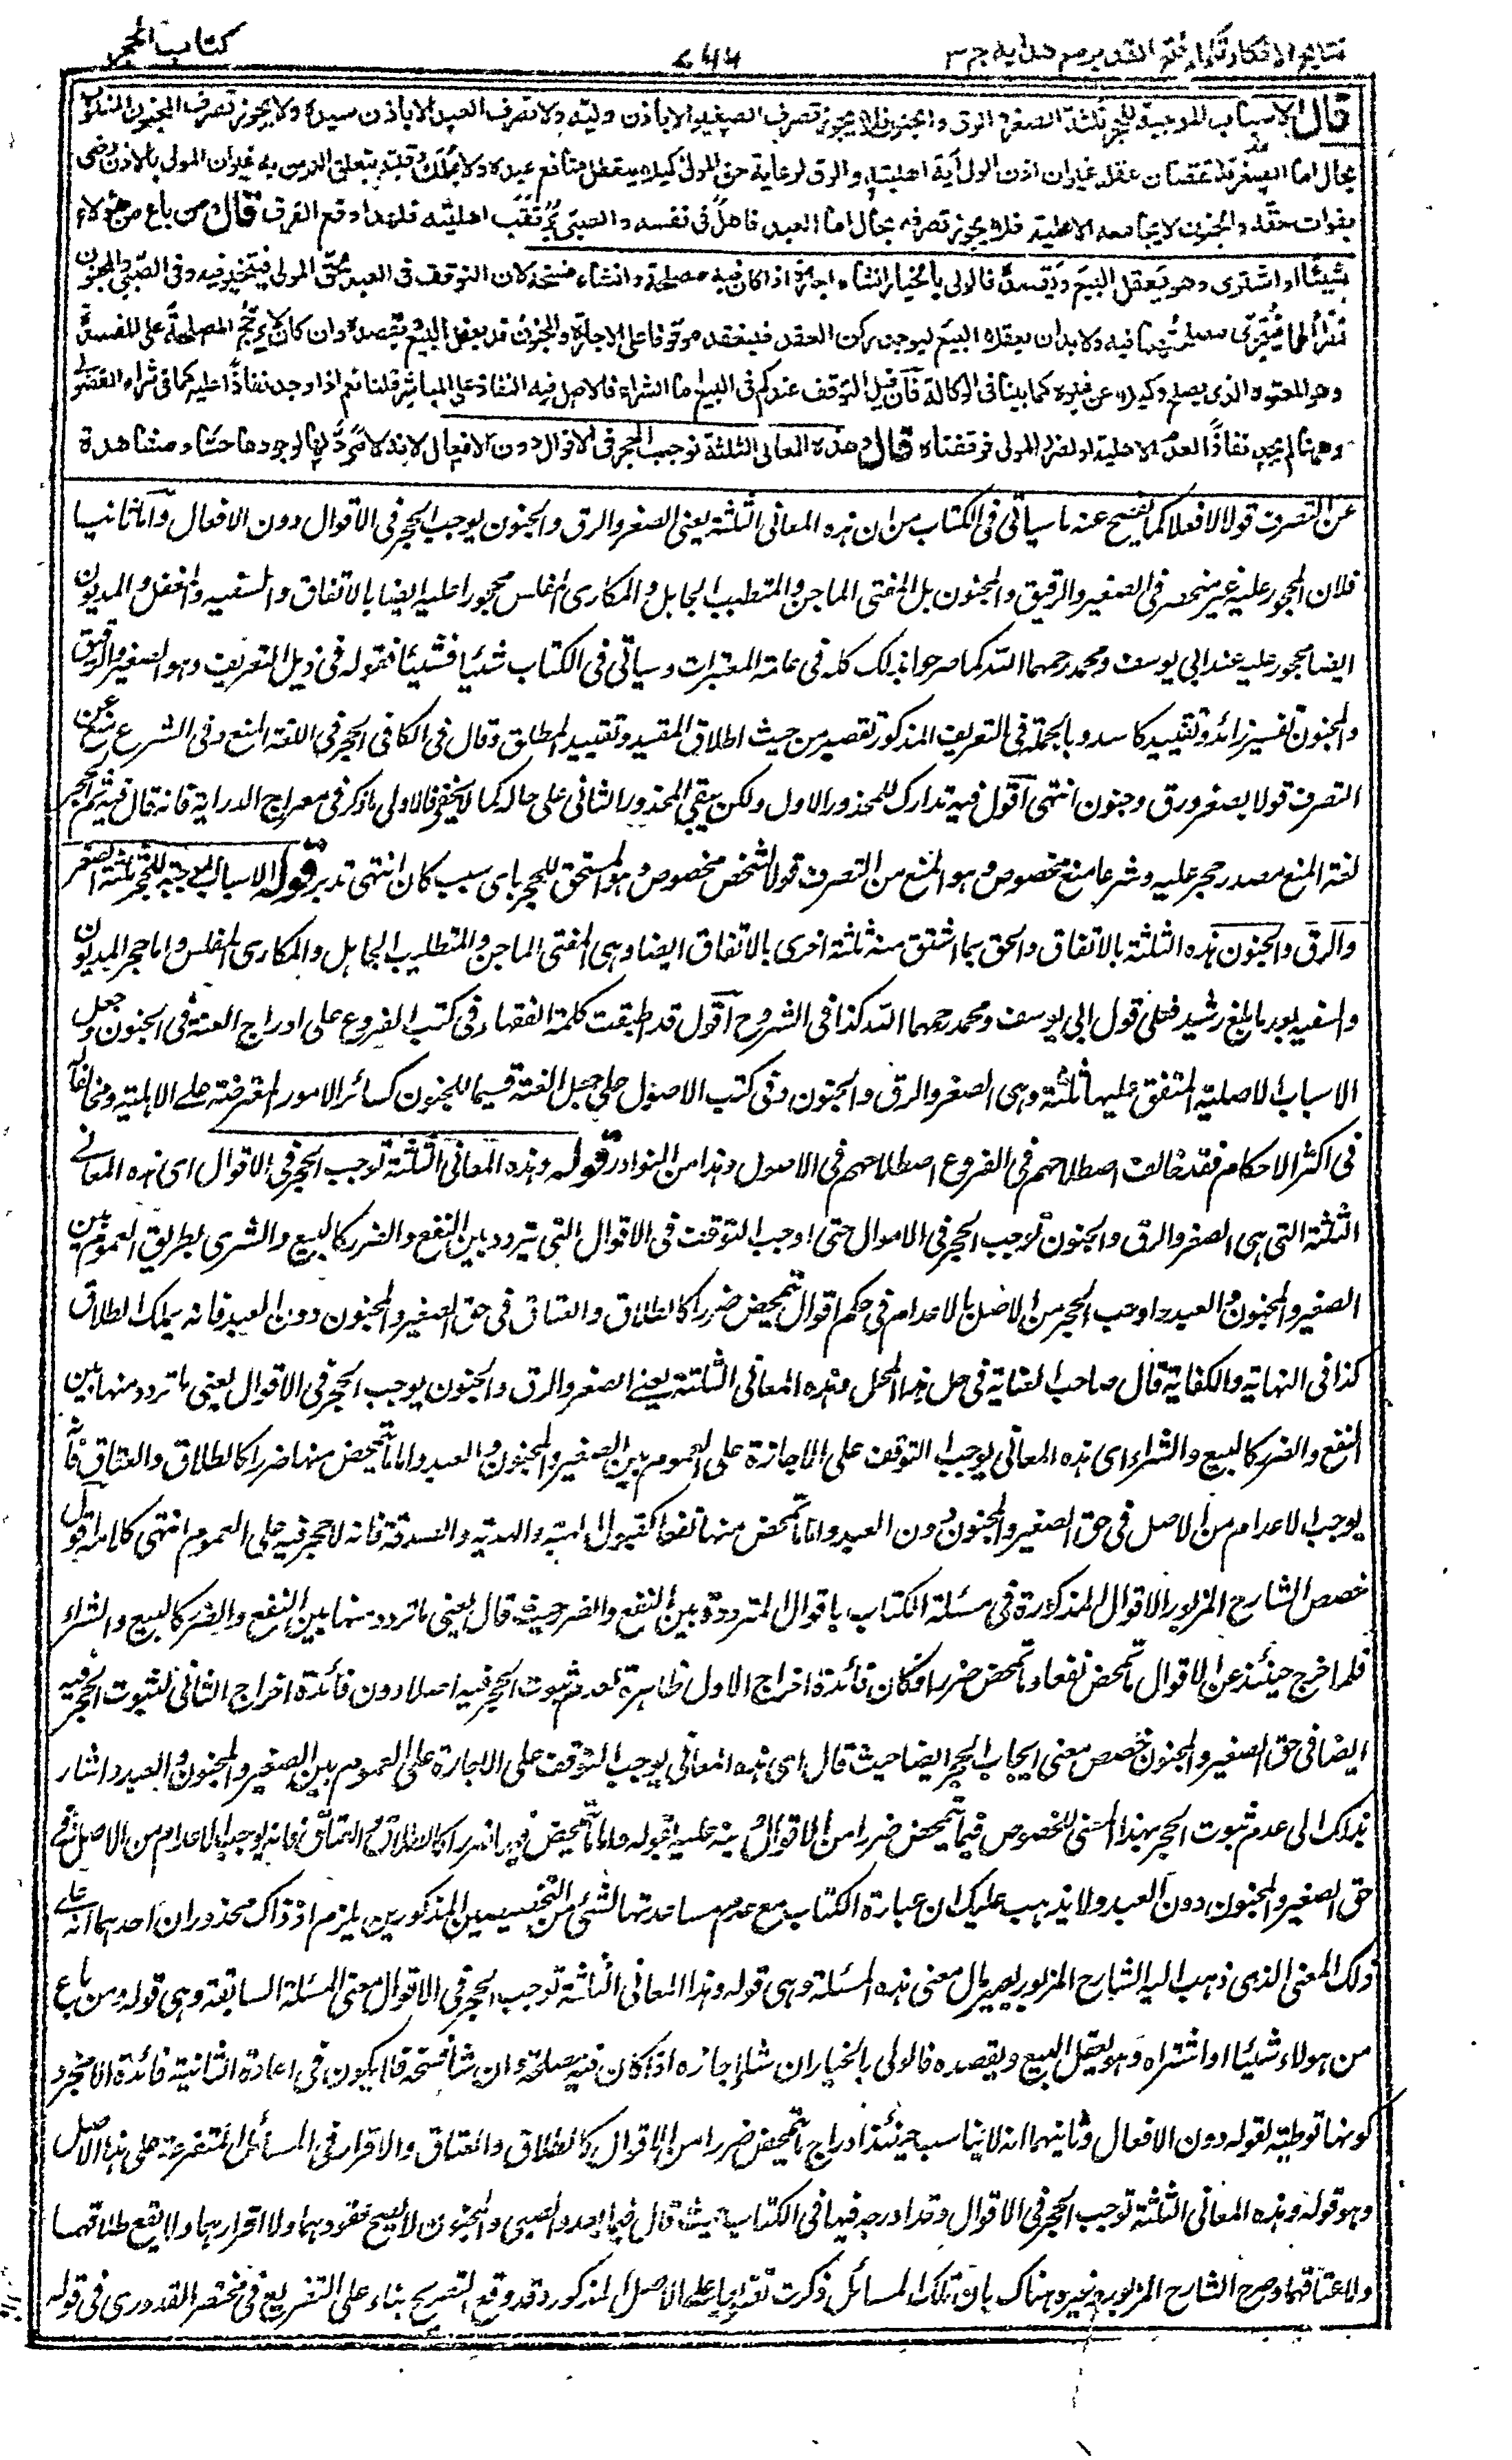 نتائج الافكار تكملة فتح القدير مع هدايه ج ٣
٧٦٦
كتاب الحجر
قال الاسباب الموجبة للحجر ثلثة الصغر والرق والجنون فلا يجوز تصرف الصغير الا باذن وليه ولا تصرف العبد الا باذن سيده ولا يجوز تصرف المجنون المغلوب
بحال اما الصغر فلنقصان عقله غير ان اذن الولي آية اهليته والرق لرعاية حق المولى كيلا يتعطل منافع عبده ولا يملك رقبته بتعلق الدين به غير ان المولى بالاذن رضي
بفوات حقه والجنون لا يجامعه الاهلية فلا يجوز تصرفه بحال اما العبد فاهل في نفسه والصبي يرتقب اهليته فلهذا وقع الفرق قال ومن باع من هؤلاء
شيئا او اشترى وهو يعقل البيع ويقصده فالولي بالخيار ان شاء اجازه اذا كان فيه مصلحة وان شاء فسخه لان التوقف في العبد لحق المولى فيتخير فيه وفي الصبي والمجنون
نظرا لهما فيتحرى مصلحتهما فيه ولا بد ان يعقلا البيع ليوجد ركن العقد فينعقد موقوفا على الاجازة والمجنون قد يعقل البيع ويقصده وان كان لا يرجح المصلحة على المفسدة
وهو المعتوه الذي يصلح وكيلا عن غيره كما بينا في الوكالة فان قيل التوقف عندكم في البيع اما الشراء فالاصل فيه النفاذ على المباشر قلنا نعم اذا وجد نفاذا عليه كما في شراء الفضولي
وههنا لم نجد نفاذا لعدم الاهلية او لضرر المولى فوقفناه قال وهذه المعاني الثلثة توجب الحجر في الاقوال دون الافعال لانه لا مرد لها لوجودها حسا ومشاهدة
عن التصرف قولا لا فعلا كما يفصح عنه ما سيأتي في الكتاب من ان هذه المعاني الثلثة يعني الصغر والرق والجنون يوجب الحجر في الاقوال دون الافعال واما ثانيا
فلان المحجور عليه غير منحصر في الصغير والرقيق والمجنون بل المفتي الماجن والمتطبب الجاهل والمكاري المفلس محجور عليه ايضا بالاتفاق والسفيه والمغفل والمديون
ايضا محجور عليه عند ابي يوسف ومحمد رحمهما الله كما صرحوا بذلك كله في عامة المعتبرات وسيأتي في الكتاب شيئا فشيئا فقوله في ذيل التعريف وهو الصغير والرقيق
والمجنون تفسير زائد وتقييد كاسد وبالجملة في التعريف المذكور تقصير من حيث اطلاق المقيد وتقييد المطلق وقال في الكافي الحجر في اللغة المنع وفي الشرع منع عن
التصرف قولا بصغر ورق وجنون انتهى اقول فيه تدارك للمحذور الاول ولكن يبقى المحذور الثاني على حاله كما لا يخفى فالاولى ما ذكر في معراج الدراية فانه قال فيه ثم الحجر
لغة المنع مصدر حجر عليه وشرعا منع مخصوص وهو المنع من التصرف قولا لشخص مخصوص وهو المستحق للحجر باي سبب كان انتهى تدبر قوله الاسباب الموجبة للحجر ثلثة الصغر
والرق والجنون هذه الثلثة بالاتفاق والحق بما اشتق منه ثلثة اخرى بالاتفاق ايضا وهي المفتي الماجن والمتطبب الجاهل والمكاري المفلس واما حجر المديون
والسفيه بعد ما بلغ رشيدا فعلى قول ابي يوسف ومحمد رحمهما الله كذا في الشروح اقول قد اطبقت كلمة الفقهاء في كتب الفروع على ادراج العته في الجنون وجعل
الاسباب الاصلية المتفق عليها ثلثة وهي الصغر والرق والجنون وفي كتب الاصول على جعل العته قسيما للجنون كسائر الامور المعترضة على الاهلية ومخالفا
في اكثر الاحكام فقد خالف اصطلاحهم في الفروع اصطلاحهم في الاصول وهذا من النوادر قوله وهذه المعاني الثلثة توجب الحجر في الاقوال اي هذه المعاني
الثلثة التي هي الصغر والرق والجنون توجب الحجر في الاموال حتى اوجب التوقف في الاقوال التي يتردد بين النفع والضرر كالبيع والشرى بطريق العموم بين
الصغير والمجنون والعبد واوجب الحجر من الاصل بالاعدام في حكم اقوال تتمحض ضررا كالطلاق والعتاق في حق الصغير والمجنون دون العبد فانه يملك الطلاق
كذا في النهاية والكفاية قال صاحب العناية في حل هذا المحل وهذه المعاني الثلثة يعني الصغر والرق والجنون يوجب الحجر في الاقوال يعني ما تردد منها بين
النفع والضرر كالبيع والشراء اي هذه المعاني يوجب التوقف على الاجازة على العموم بين الصغير والمجنون والعبد واما ما تمحض منها ضررا كالطلاق والعتاق فانه
يوجب الاعدام من الاصل في حق الصغير والمجنون دون العبد واما ما تمحض منها نفعا كقبول الهبة والهدية والصدقة فانه لا حجر فيه على العموم انتهى كلامه اقول
خصص الشارح المزبور الاقوال المذكورة في مسئلة الكتاب باقوال المترددة بين النفع والضرر حيث قال يعني ما تردد منها بين النفع والضرر كالبيع والشراء
فلما خرج حينئذ عن الاقوال ما تمحض نفعا وما تمحض ضررا فكان فائدة اخراج الاول ظاهرة لعدم ثبوت الحجر فيه اصلا دون فائدة اخراج الثاني لثبوت الحجر فيه
ايضا في حق الصغير والمجنون خصص معنى ايجاب الحجر ايضا حيث قال اي هذه المعاني يوجب التوقف على الاجازة على العموم بين الصغير والمجنون والعبد واشار
بذلك الى عدم ثبوت الحجر بهذا المعنى المخصوص فيما تمحض ضررا من الاقوال ونبه عليه بقوله واما ما تمحض منها ضررا كالطلاق والعتاق فانه يوجب الاعدام من الاصل في
حق الصغير والمجنون دون العبد ولا يذهب عليك ان عبارة الكتاب مع عدم مساعدتها لشيء من التخصيصين المذكورين يلزم اذ ذاك محذوران احدهما انه على
ذلك المعنى الذي ذهب اليه الشارح المزبور يصير مآل معنى هذه المسئلة وهي قوله وهذا المعاني الثلثة توجب الحجر في الاقوال معنى المسئلة السابقة وهي قوله ومن باع
من هولاء شيئا او اشتراه وهو يعقل البيع ويقصده فالولي بالخيار ان شاء اجازه اذا كان فيه مصلحة وان شاء فسخه فلا يكون في اعادة الثانية فائدة الا مجرد
كونها توطية لقوله دون الافعال وثانيهما انه لا يناسب حينئذ ادراج ما تمحض ضررا من الاقوال كالطلاق والعتاق والاقرار في المسائل المتفرعة على هذا الاصل
وهو قوله وهذه المعاني الثلثة توجب الحجر في الاقوال وقد ادرجه فيها في الكتاب حيث قال فيما بعد والصبي والمجنون لا يصح عقودهما ولا اقرارهما ولا يقع طلاقهما
ولا عتاقهما وصرح الشارح المزبور وغيره هناك بان تلك المسائل ذكرت تفريعا على الاصل المذكور وقد وقع التصريح بناء على التفريع في مختصر القدوري في قوله